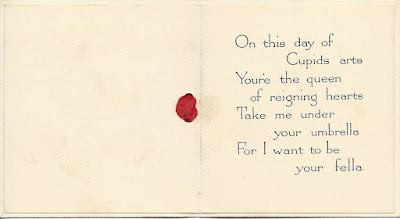 On this day of
Cupids arts
You're the queen
of reigning hearts
Take me under
your umbrella
For I want to be
your fella.